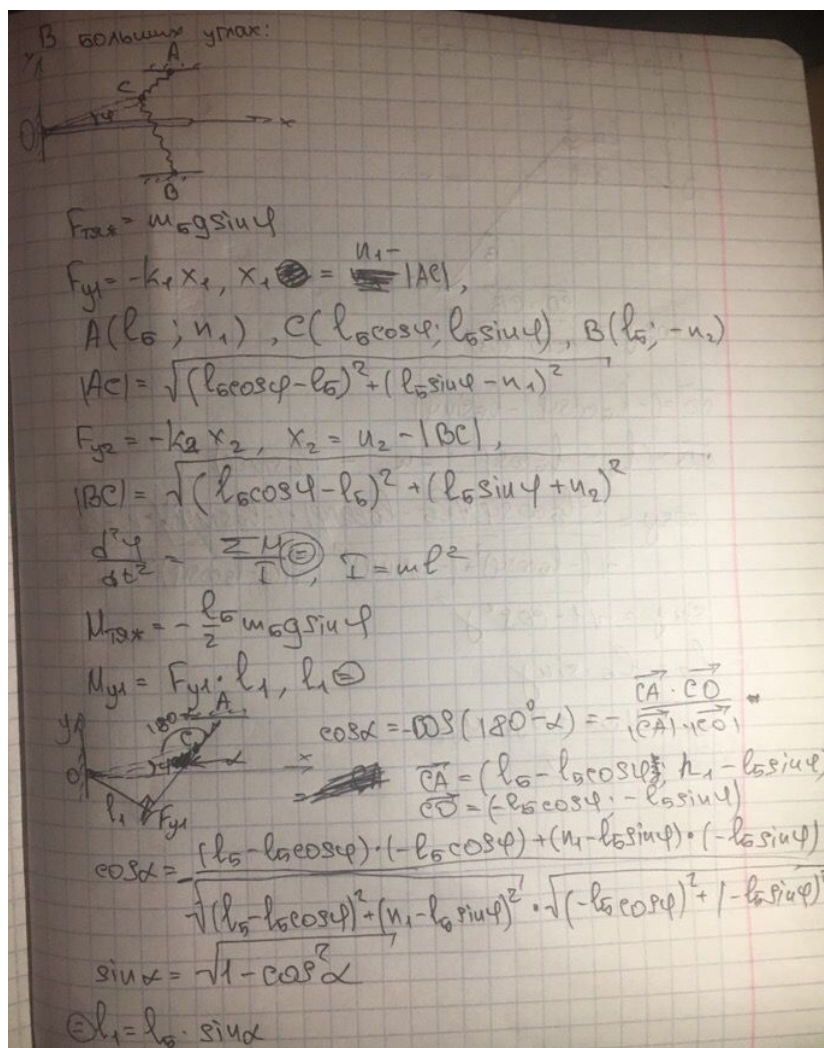 В больших углах:
y
A
C
φ
O
x
B
Fтяж = mбg sinφ
Fу1 = -k1x1, x1 = n1 - |AC|,
A(lб; n1), C(lбcosφ; lбsinφ), B(lб; -n2)
|AC| = √((lбcosφ - lб)² + (lбsinφ - n1)²)
Fу2 = -k2x2, x2 = n2 - |BC|,
|BC| = √((lбcosφ - lб)² + (lбsinφ + n2)²)
d²φ/dt² = ΣM/I ⊜, I = ml²
Mтяж = - lб/2 mбg sinφ
Mу1 = Fу1 · l1, l1 ⊜
y
180-α
A
C
O
φ
α
x
l1
Fу1
cosα = -cos(180° - α) = - (CA→ · CO→)/(|CA→| · |CO→|)
CA→ = (lб - lбcosφ; n1 - lбsinφ)
=
CO→ = (-lбcosφ; -lбsinφ)
cosα = - ((lб - lбcosφ)·(-lбcosφ) + (n1 - lбsinφ)·(-lбsinφ))/(√((lб - lбcosφ)² + (n1 - lбsinφ)²) · √((-lбcosφ)² + (-lбsinφ)²))
sinα = √(1 - cos²α)
⊜ l1 = lб · sinα